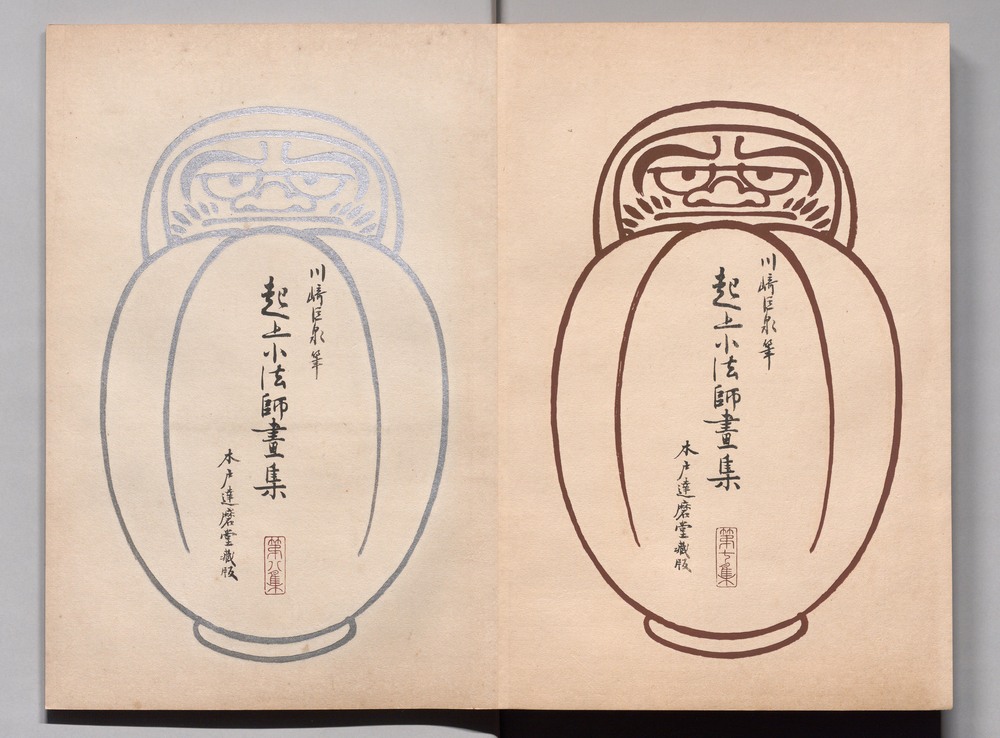 川﨑巨泉筆
起上小法師畫集
木戸達磨堂藏版
第七集
川﨑巨泉筆
起上小法師畫集
木戸達磨堂藏版
第八集